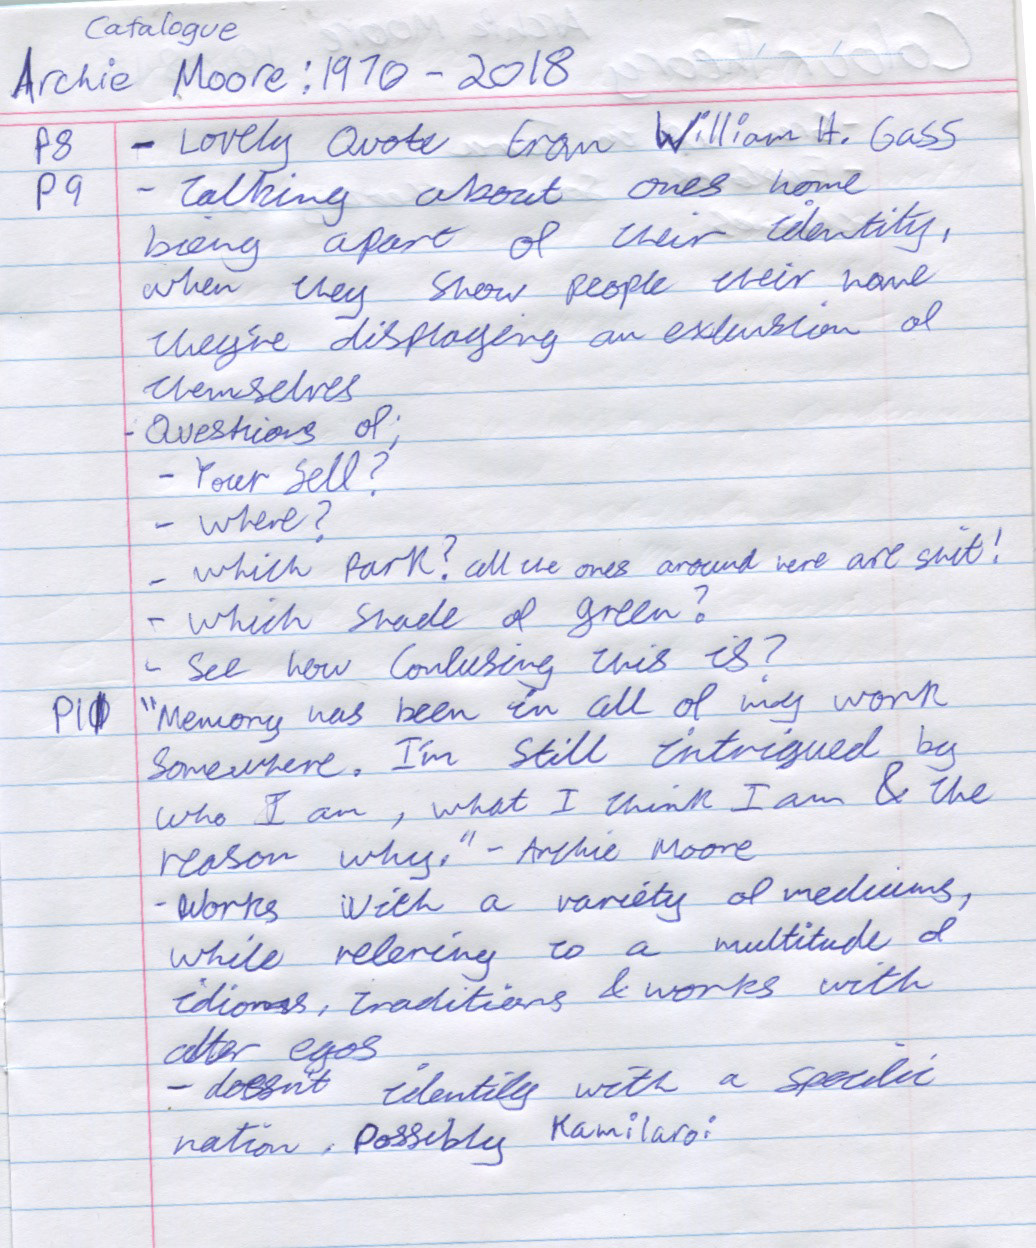 Catalogue
Archie Moore: 1970 - 2018
P8 - Lovely Quote from William H. Gass
P9 - talking about ones home
being apart of their identity,
when they show people their home
they're displaying an extension of
themselves
- Questions of;
- Your self?
- where?
- which park? all the ones around here are shit!
- which shade of green?
- See how confusing this is?
P10 "Memory has been in all of my work
Somewhere. I'm still intrigued by
who I am, what I think I am & the
reason why." - Archie Moore
- Works with a variety of mediums,
while refering to a multitude of
idioms, traditions & works with
alter egos
- doesn't identify with a specific
nation, possibly Kamilaroi